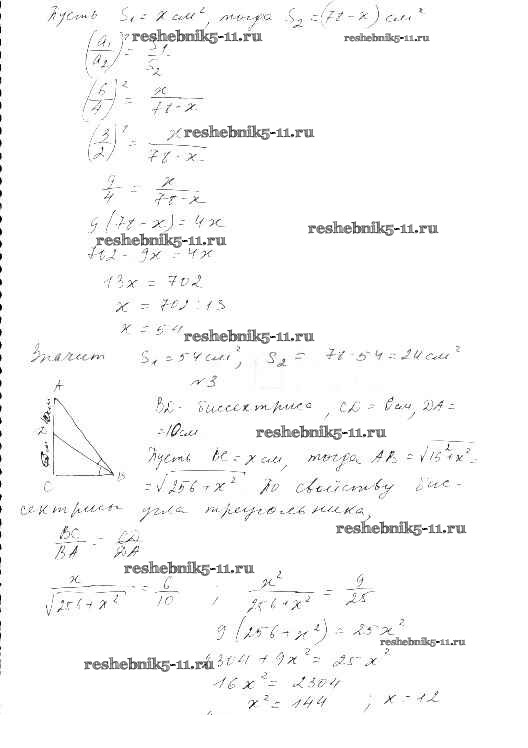 Пусть S₁ = x см², тогда S₂ = (78 - x) см²
reshebnik5-11.ru
reshebnik5-11.ru
(a₁/a₂)² = S₁/S₂
(6/4)² = x/(78 - x)
(3/2)² = x/(78 - x)
reshebnik5-11.ru
9/4 = x/(78 - x)
9(78 - x) = 4x
reshebnik5-11.ru
reshebnik5-11.ru
702 - 9x = 4x
13x = 702
x = 702 : 13
x = 54
reshebnik5-11.ru
Значит S₁ = 54 см², S₂ = 78 - 54 = 24 см²
№3
A
D
C
B
BD - биссектриса, CD = 6 см, DA =
= 10 см
reshebnik5-11.ru
Пусть BC = x см, тогда AB = √(16² + x²) =
= √(256 + x²) По свойству бис-
сектрисы угла треугольника,
reshebnik5-11.ru
BC/BA = CD/DA
reshebnik5-11.ru
x/√(256 + x²) = 6/10 ; x²/(256 + x²) = 9/25
9(256 + x²) = 25x²
reshebnik5-11.ru
reshebnik5-11.ru
2304 + 9x² = 25x²
16x² = 2304
x² = 144 ; x = 12